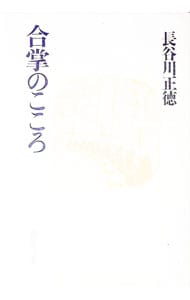 長谷川正徳
合掌のこころ